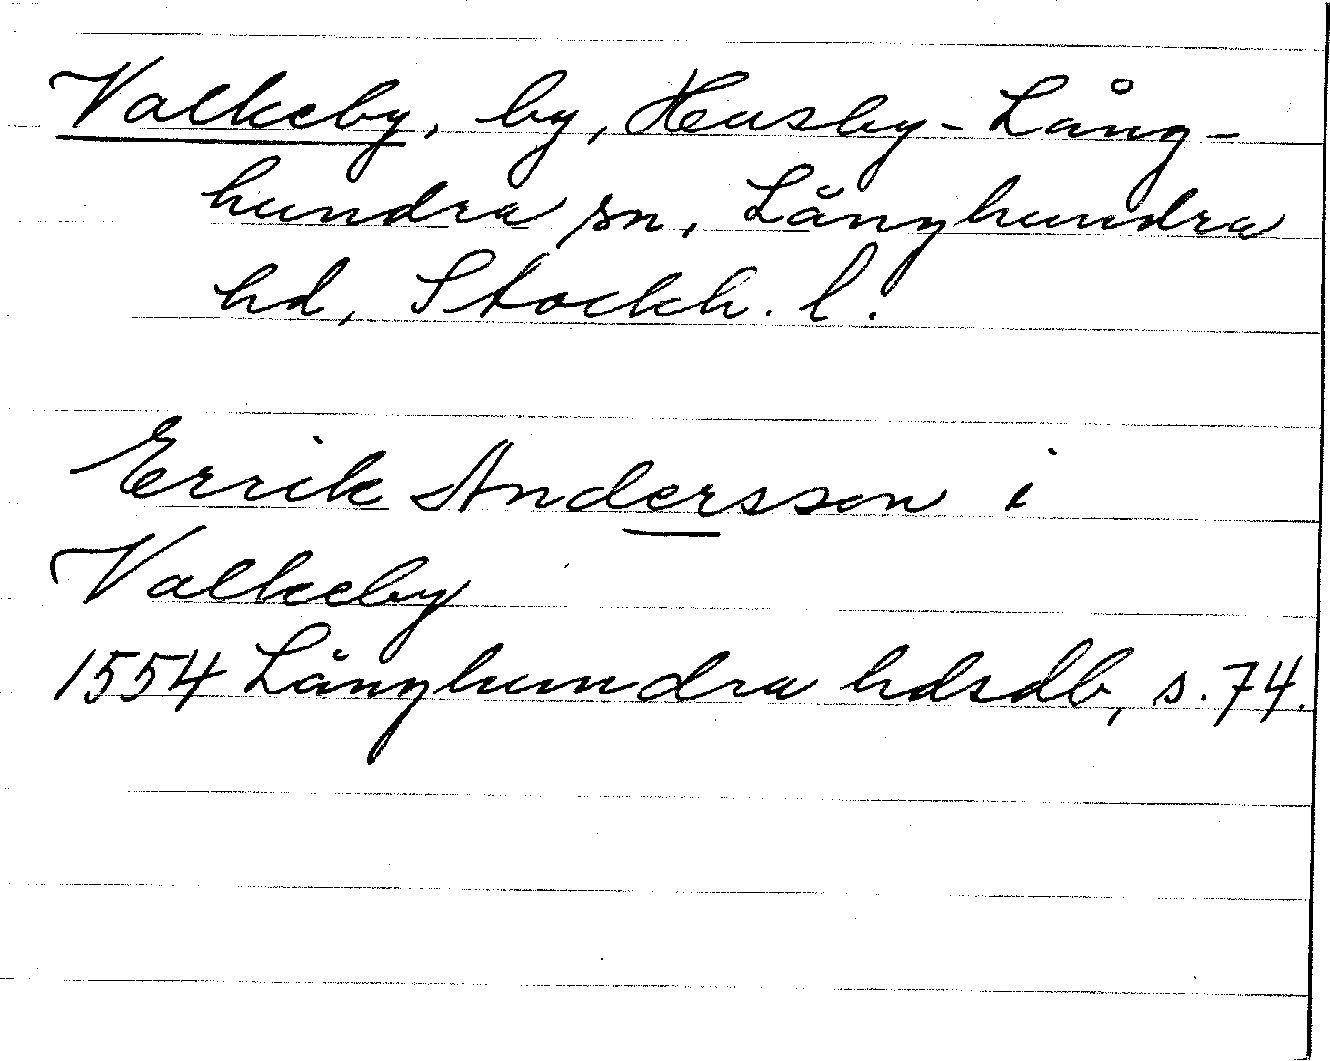 Valkeby, by, Husby-Lång-
hundra sn, Långhundra
hd, Stockh. l.
Errik Andersson i
Valkeby
1554 Långhundra hdsdb, s. 74.